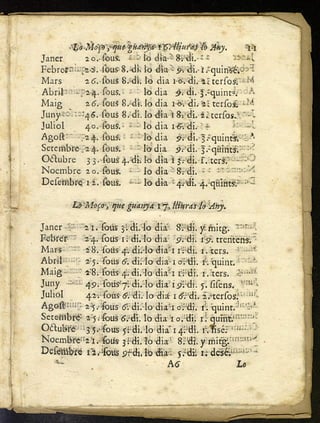 Lo Moço, que guanya 16. lliuras lo Any. 11
Janer 20. sous. lo dia 8. di.
Febrer sous 8. di. lo dia 9. di. 1. quinsé.
Mars 26. sous 8. di. lo dia 10. di. 2. tersos.
Abril 24. sous. lo dia 9. di. 3. quints.
Maig 26. sous 8. di. lo dia 10. di. 2. tersos.
Juny 46. sous 8. di. lo dia 18. di. 2. tersos.
Juliol 40. sous. lo dia 16. di.
Agost 24. sous. lo dia 9. di. 3. quints.
Setembre 24. sous. lo dia 9. di. 3. quints.
Octubre 33. sous 4. di. lo dia 13. di. 1. ters.
Noembre 20. sous. lo dia 8. di.
Desembre 12. sous. lo dia 4. di. 4. quints.
Lo Moço, que guanya 17. lliuras lo Any.
Janer 21. sous 3. di. lo dia 8. di. y mitg.
Febrer 24. sous 1. di. lo dia 9. di. 19. trentens.
Mars 28. sous 4. di. lo dia 11. di. 1. ters.
Abril 25. sous 6. di. lo dia 10. di. 1. quint.
Maig 28. sous 4. di. lo dia 11. di. 1. ters.
Juny 49. sous 7. di. lo dia 19. di. 5. sisens.
Juliol 42. sous 6. di. lo dia 16. di. 2. tersos.
Agost 25. sous 6. di. lo dia 10. di. 1. quint.
Setembre 25. sous 6. di. lo dia 10. di. 1. quint.
Octubre 35. sous 5. di. lo dia 14. di. 1. sisé.
Noembre 21. sous 3. di. lo dia 8. di. y mitg.
Desembre 12. sous 9. di. lo dia 5. di. 1. desé.
A6 Lo